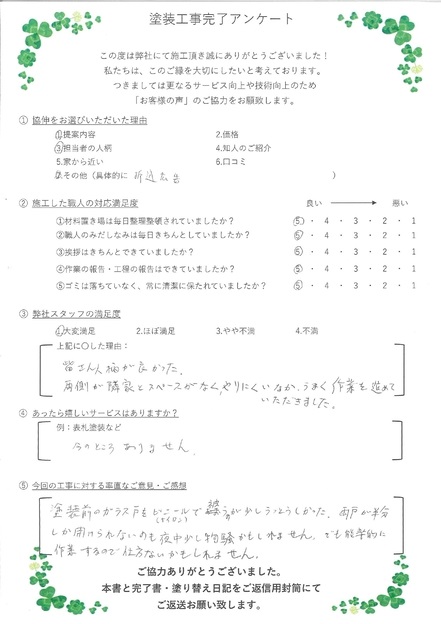 塗装工事完了アンケート
この度は弊社にて施工頂き誠にありがとうございました！
私たちは、このご縁を大切にしたいと考えております。
つきましては更なるサービス向上や技術向上のため
「お客様の声」のご協力をお願致します。
① 協伸をお選びいただいた理由
1.提案内容 2.価格
3.担当者の人柄 4.知人のご紹介
5.家から近い 6.口コミ
7.その他（具体的に 折込広告 ）
② 施工した職人の対応満足度 良い 悪い
①材料置き場は毎日整理整頓されていましたか？ 5 ・ 4 ・ 3 ・ 2 ・ 1
②職人のみだしなみは毎日きちんとしていましたか？ 5 ・ 4 ・ 3 ・ 2 ・ 1
③挨拶はきちんとできていましたか？ 5 ・ 4 ・ 3 ・ 2 ・ 1
④作業の報告・工程の報告はできていましたか？ 5 ・ 4 ・ 3 ・ 2 ・ 1
⑤ゴミは落ちていなく、常に清潔に保たれていましたか？ 5 ・ 4 ・ 3 ・ 2 ・ 1
③ 弊社スタッフの満足度
1.大変満足 2.ほぼ満足 3.やや不満 4.不満
上記に〇した理由：
皆さん人柄が良かった。
両側が隣家とスペースがなく、やりにくいなか、うまく作業を進めて
いただきました。
④ あったら嬉しいサービスはありますか？
例：表札塗装など
今のところありません。
⑤ 今回の工事に対する率直なご意見・ご感想
塗装前のガラス戸をビニールで 被う が少しうっとうしかった。雨戸が半分
(ナイロン)
しか開けられないのも夜中少し物騒かもしれません。でも能率的に
作業するので仕方ないかもしれません。
ご協力ありがとうございました。
本書と完了書・塗り替え日記をご返信用封筒にて
ご返送お願い致します。